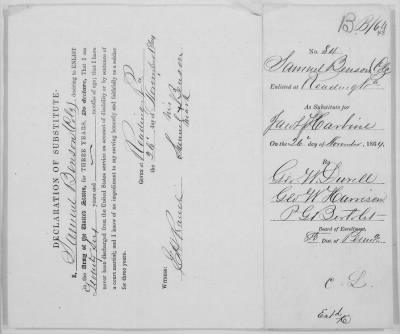 DECLARATION OF SUBSTITUTE.
I, Samuel Benson (Cl'd), desiring to ENLIST
in the Army of the United States, for THREE YEARS, Do declare, That I am
Twenty two years and months of age; that I have
never been discharged from the United States service on account of disability or by sentence of
a court martial; and I know of no impediment to my serving honestly and faithfully as a soldier
for three years.
GIVEN at Reading Pa
the 26th day of November 1864
Samuel Benson
his
mark
WITNESS:
B
No. 24
Samuel Benson
Enlisted at Reading Pa
As Substitute for
On the 26th day of November, 1864.
Geo W
Geo W Harrison
P. G. Bertolet
Board of Enrollment,
8th Dist. of Penna
C. L.